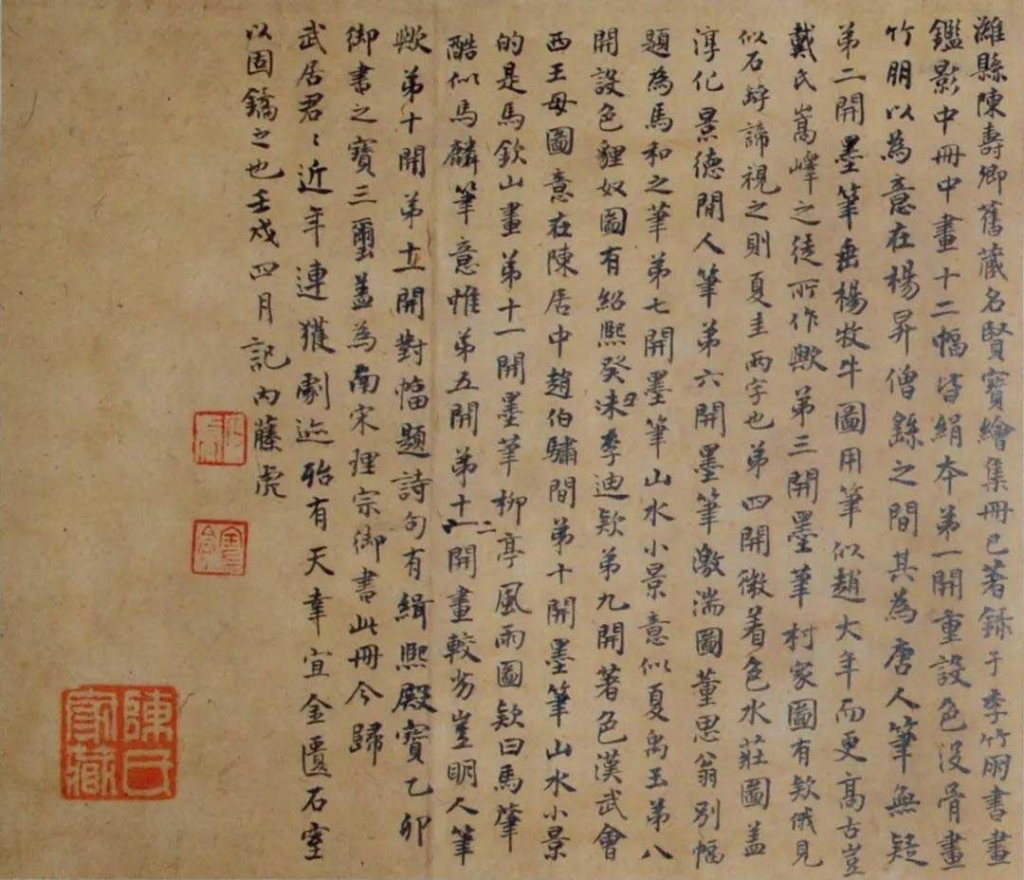 濰縣陳壽卿舊藏名賢寶繪集冊已著錄于李竹朋書畫
鑑影中冊中畫十二幅皆絹本第一開重設色沒骨畫
竹朋以為意在楊昇僧繇之間其為唐人筆無疑
第二開墨筆垂楊牧牛圖用筆似趙大年而更高古豈
戴氏嵩嶧之徒所作歟第三開墨筆村家圖有欵俄見
似石辥諦視之則夏圭兩字也第四開微着色水莊圖蓋
淳化景德間人筆第六開墨筆激湍圖董思翁別幅
題為馬和之筆第七開墨筆山水小景意似夏禹玉第八
開設色貍奴圖有紹熙癸丑未李迪欵第九開著色漢武會
西王母圖意在陳居中趙伯驌間第十開墨筆山水小景
的是馬欽山畫第十一開墨筆柳亭風雨圖欵曰馬肇
酷似馬麟筆意惟第五開第十二開畫較劣豈明人筆
歟第十開第十一開對幅題詩句有緝熙殿寶乙卯
御書之寶三璽蓋為南宋理宗御書此冊今歸
武居君〻近年連獲劇迹殆有天幸宜金匱石室
以固鐍之也壬戌四月記內藤虎
陳氏
家藏